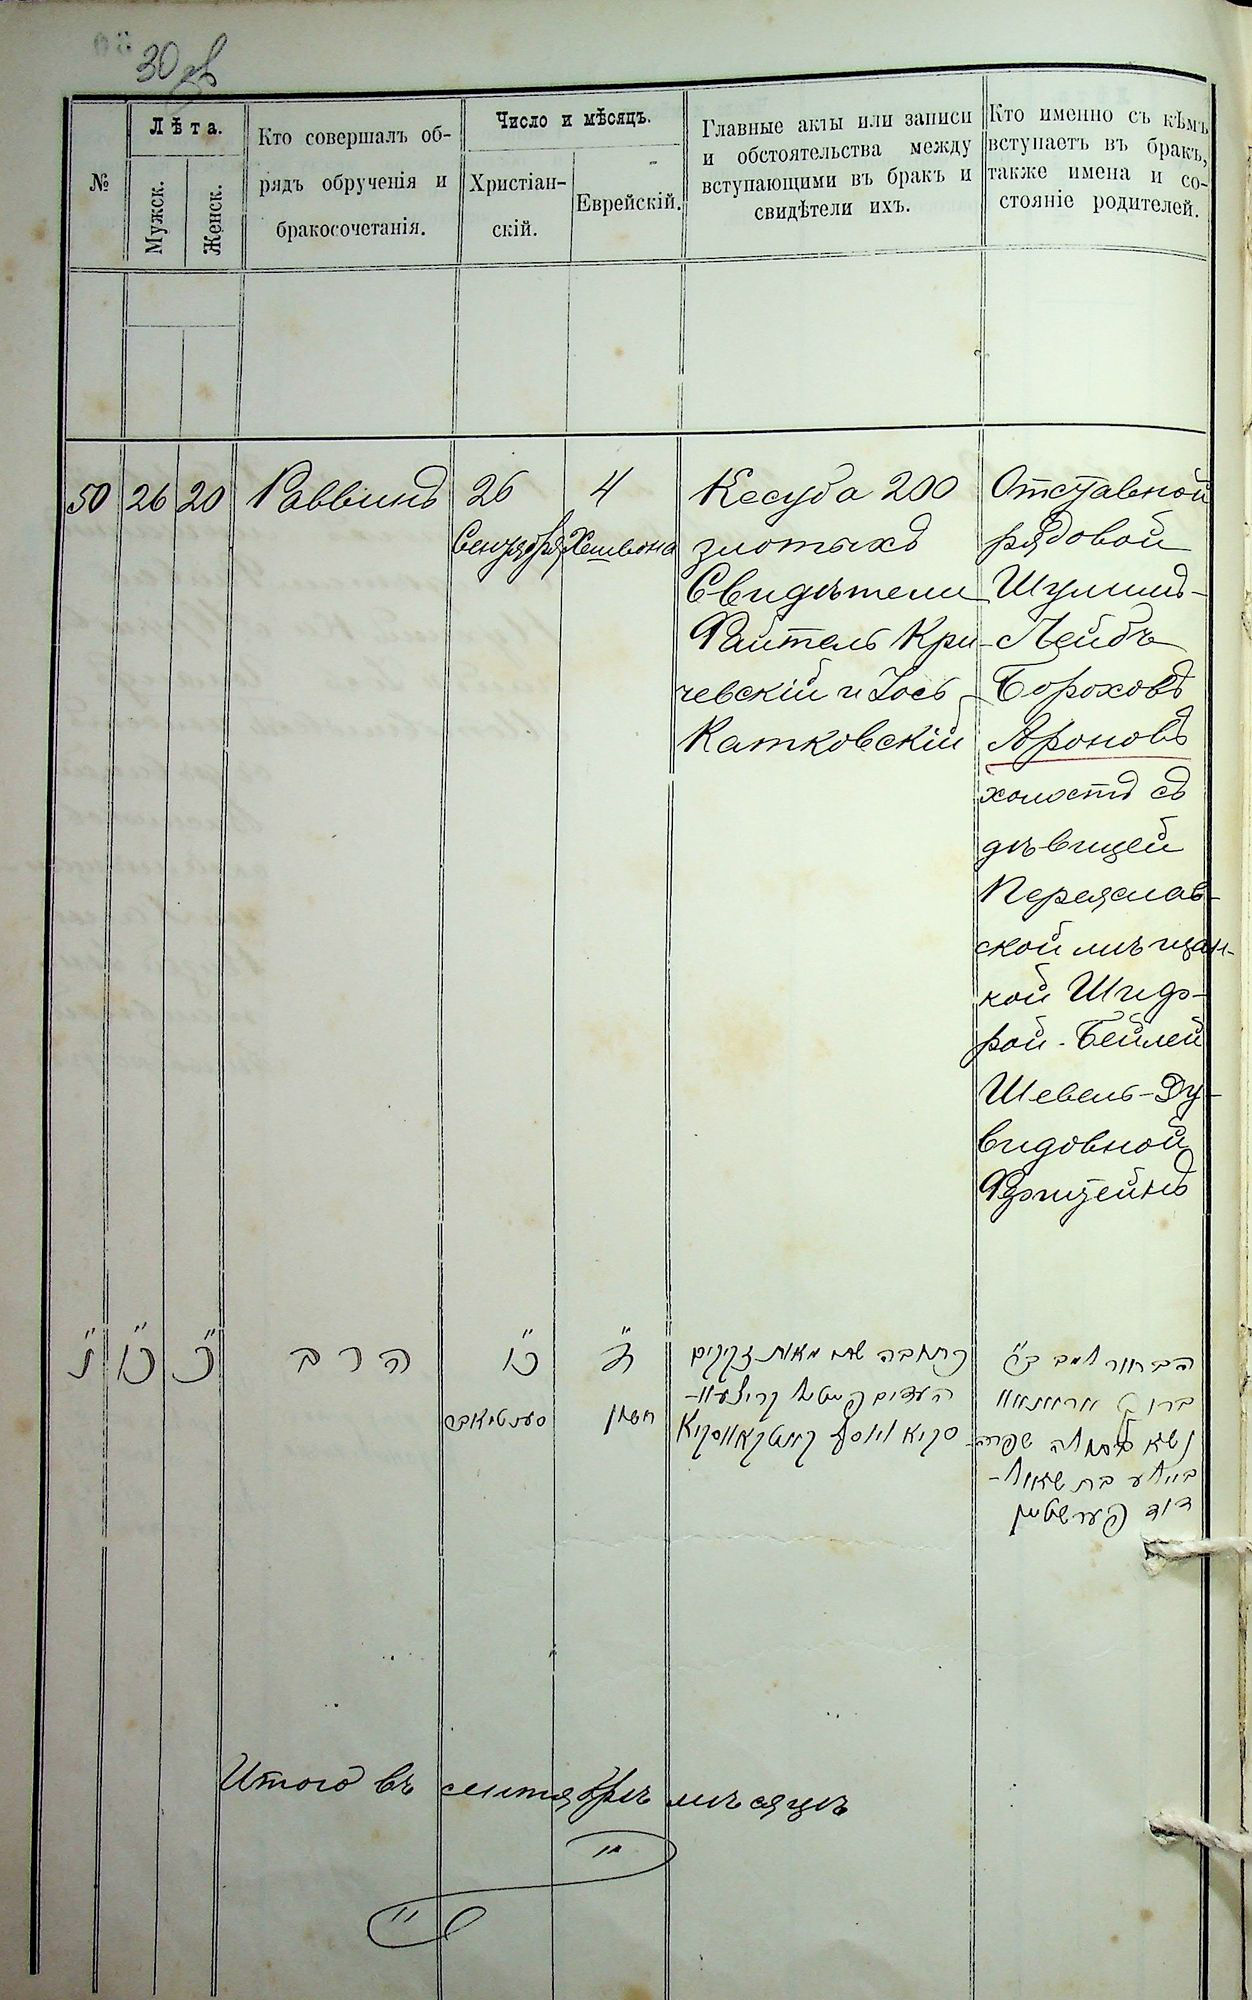 30 об
№
Лѣта.
Мужск.
Женск.
Кто совершалъ об-
рядъ обрученія и
бракосочетанія.
Число и мѣсяцъ.
Христіан-
скій.
Еврейскій.
Главные акты или записи
и обстоятельства между
вступающими въ бракъ и
свидѣтели ихъ.
Кто именно съ кѣмъ
вступаетъ въ бракъ,
также имена и со-
стояніе родителей.
50
26
20
Раввинъ
26
Сентября
4
Хешвона
Кесуба 200
злотыхъ
Свидѣтели
Файтель Кри-
чевскій и Іось
Катковскій
Отставной
рядовой
Шулимъ-
Лейбъ
Бороховъ
Ароновъ
холостъ съ
дѣвицей
Переяслав-
ской мѣщан-
кой Шифъ-
рой-Бейлей
Шевель-Ду-
видовной
נ
כו
כ
הרב
כו
סענטיאבר
ד
חשון
כתובה שתי מאות זקוקים
העדים
הבחור
ברוך
נשא שפרה
ביילע בת שאול-
דוד
Итого въ сентябрѣ мѣсяцѣ